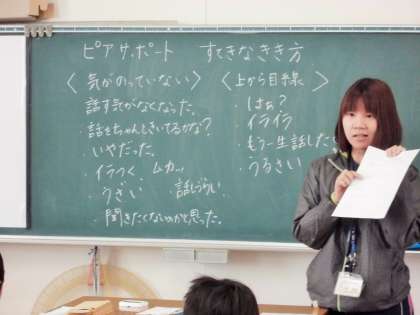 ピアサポート すてきなきき方
〈気がのっていない〉 〈上から目線〉
話す気がなくなった。 ・はぁ?
・話をちゃんときいてるかな? ・イライラ
・いやだった。 ・もう一生話したく
・イラつく ・ムカッ ・うるさい
・うざい ・話しづらい
・聞きたくないのかと思った。